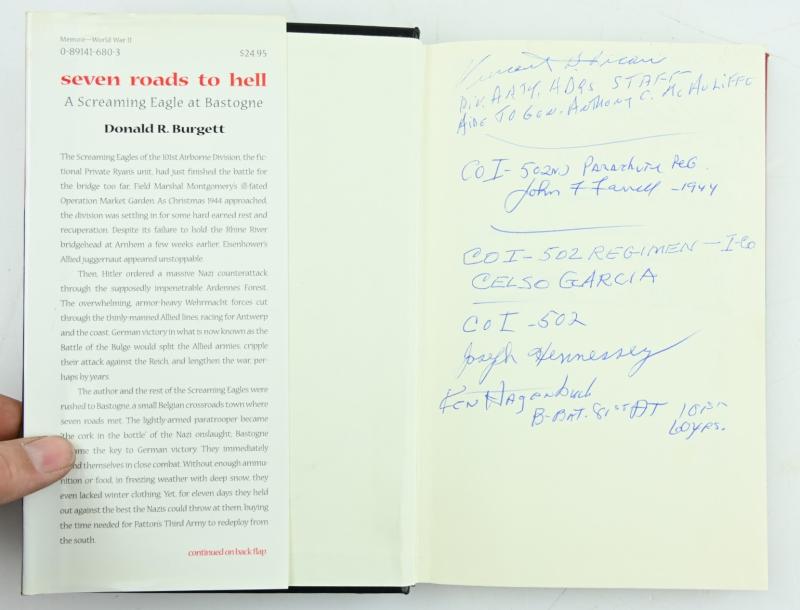 Memoir—World War II
0-89141-680-3 $24.95
seven roads to hell
A Screaming Eagle at Bastogne
Donald R. Burgett
The Screaming Eagles of the 101st Airborne Division, the fic-
tional Private Ryan's unit, had just finished the battle for
the bridge too far, Field Marshal Montgomery's ill-fated
Operation Market Garden. As Christmas 1944 approached,
the division was settling in for some hard earned rest and
recuperation. Despite its failure to hold the Rhine River
bridgehead at Arnhem a few weeks earlier, Eisenhower's
Allied juggernaut appeared unstoppable.
Then, Hitler ordered a massive Nazi counterattack
through the supposedly impenetrable Ardennes Forest.
The overwhelming, armor-heavy Wehrmacht forces cut
through the thinly-manned Allied lines, racing for Antwerp
and the coast. German victory in what is now known as the
Battle of the Bulge would split the Allied armies, cripple
their attack against the Reich, and lengthen the war, per-
haps by years.
The author and the rest of the Screaming Eagles were
rushed to Bastogne, a small Belgian crossroads town where
seven roads met. The lightly-armed paratrooper became
'the cork in the bottle' of the Nazi onslaught; Bastogne
me the key to German victory. They immediately
nd themselves in close combat. Without enough ammu-
nition or food, in freezing weather with deep snow, they
even lacked winter clothing. Yet, for eleven days they held
out against the best the Nazis could throw at them, buying
the time needed for Patton's Third Army to redeploy from
the south.
continued on back flap
Vincent
Div. ARTY. HDQs STAFF
AIDE TO GEN. ANTHONY C. McAULIFFE
CO I-502ND Parachute Reg.
John F Farrell -1944
CO I-502 REGIMEN - I-Co
CELSO GARCIA
CO I -502
Joseph Hennessey
KEN Hagenbuch
B-BAT. 81ST AT 101ST
60 YRS.